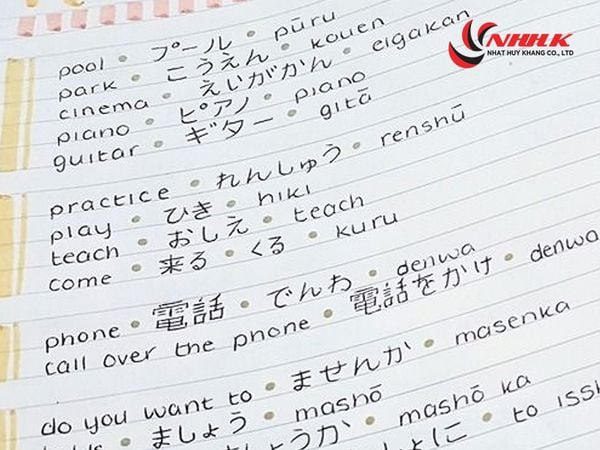 NHHK
NHAT HUY KHANG CO., LTD
pool • プール • pūru
park • こうえん • kouen
cinema • えいががん • eigakan
piano • ピアノ • piano
guitar • ギター • gitā
practice • れんしゅう • renshū
play • ひき • hiki
teach • おしえ • teach
come • 来る • くる • kuru
phone • 電話 • でんわ • denwa
call over the phone • 電話をかけ • denwa
do you want to • ませんか • masenka
• ましょう • mashō
ょうか • mashō ka
ょに • to issh